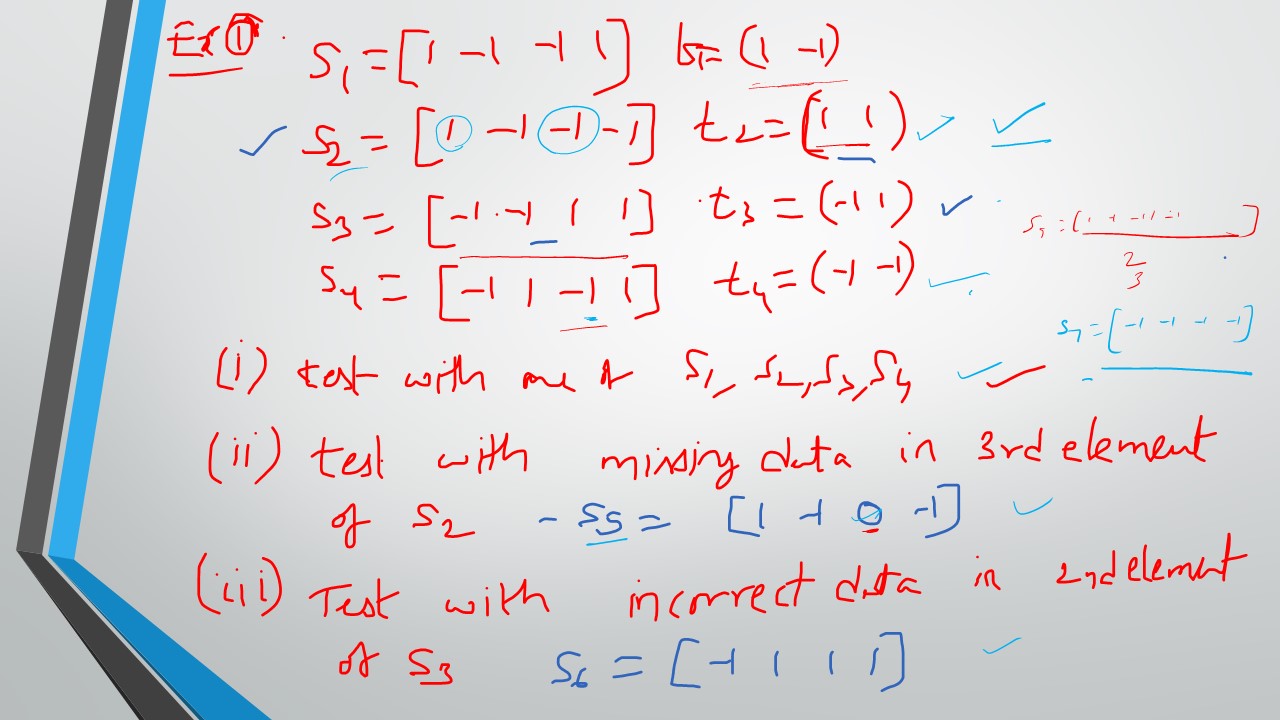 Ex ①
S1 = [1 -1 -1 1] t1 = (1 -1)
S2 = [1 -1 -1 -1] t2 = (1 1)
S3 = [-1 -1 1 1] t3 = (-1 1)
S4 = [-1 1 -1 1] t4 = (-1 -1)
2
3
S7 = [-1 -1 -1 -1]
(i) test with S1, S2, S3, S4
(ii) test with missing data in 3rd element
of S2 - S5 = [1 -1 0 -1]
(iii) Test with incorrect data in 2nd element
of S3 S6 = [-1 1 1 1]